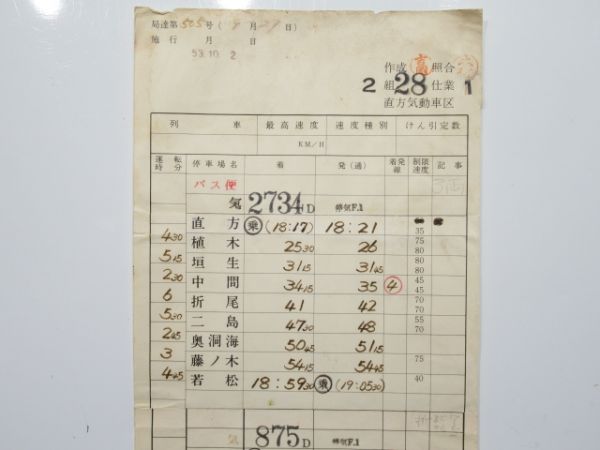 局達第505号( 月 日)
施行 月 日
53.10.2
作成 高 照合
2 組 28 仕業 1
直方気動車区
列 車 最高速度 速度種別 けん引定数
KM/H
運転時分 停車場名 着 発(通) 着発線 制限速度 記事
バス便
気 2734D 特気F.1
直方 乗 (18:17) 18:21 35
430 植木 2530 26 75 80
515 垣生 3115 3145 80 80
230 中間 3415 35 4 45 45
6 折尾 41 42 70 70
530 二島 4730 48 55 70
245 奥洞海 5045 5115
3 藤ノ木 5415 5445 75
445 若松 18:5930 乗 (19:0530) 40
気 875D 特気F.1